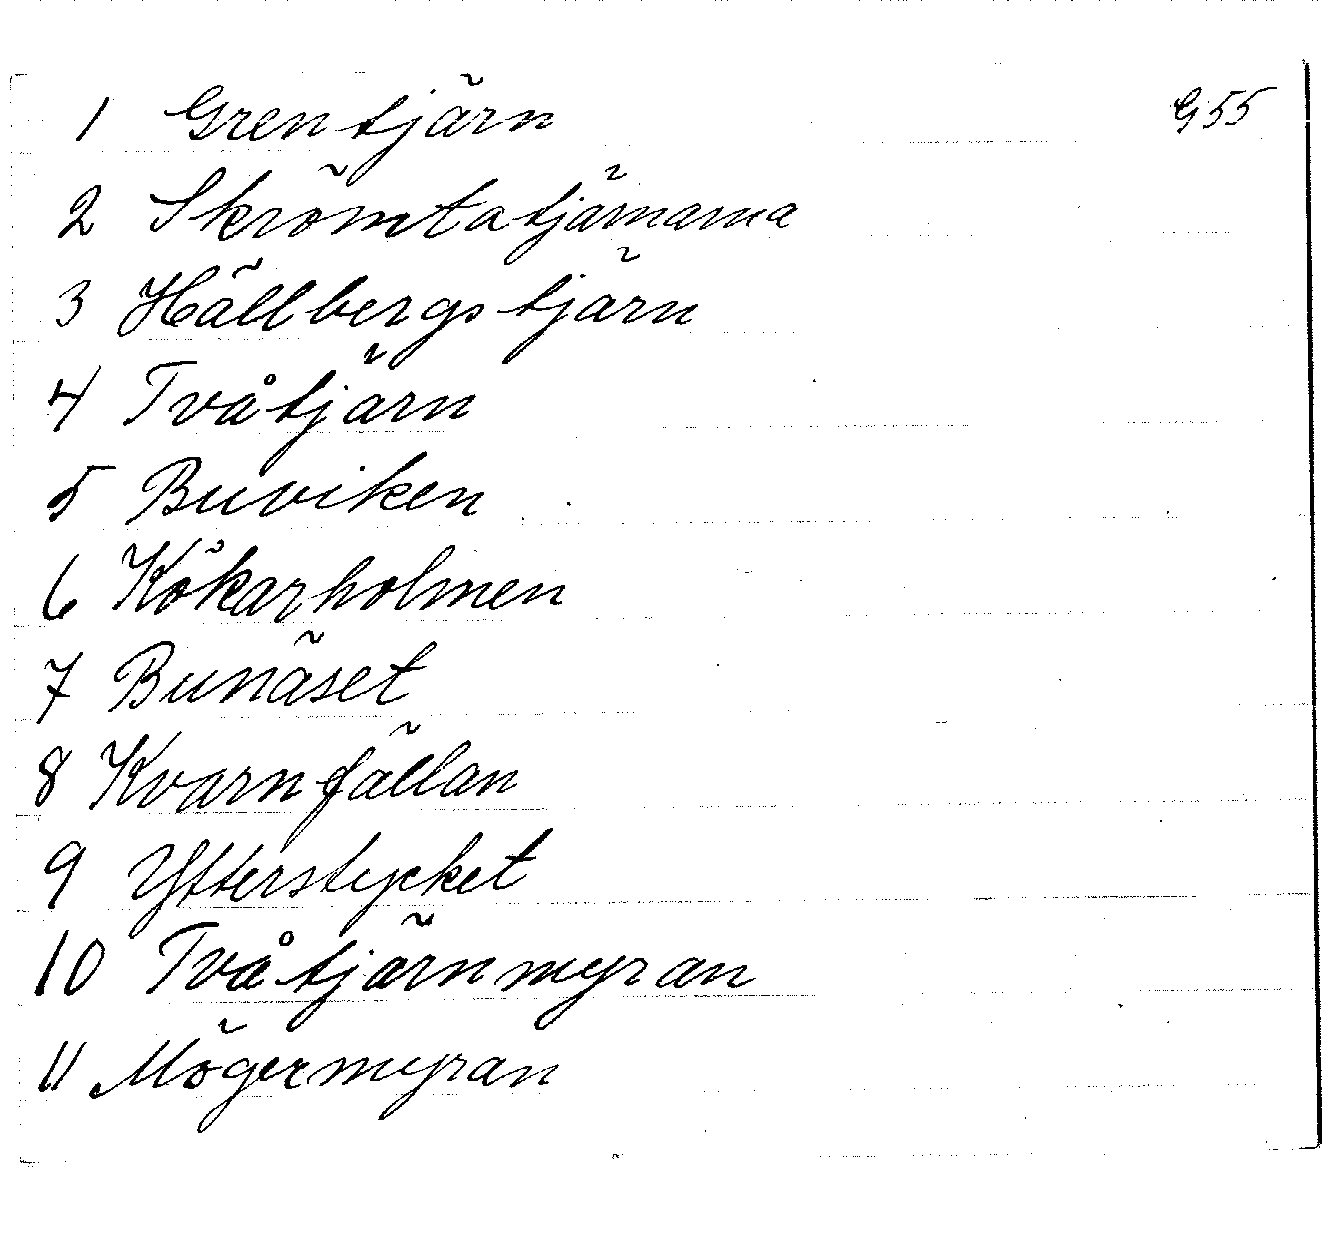 1 Grentjärn G 55
2 Skrömtatjärnarna
3 Hällbergstjärn
4 Tvåtjärn
5 Buviken
6 Kökarholmen
7 Bunäset
8 Kvarnfällan
9 Ytterstycket
10 Tvåtjärnmyran
11 Mögermyran